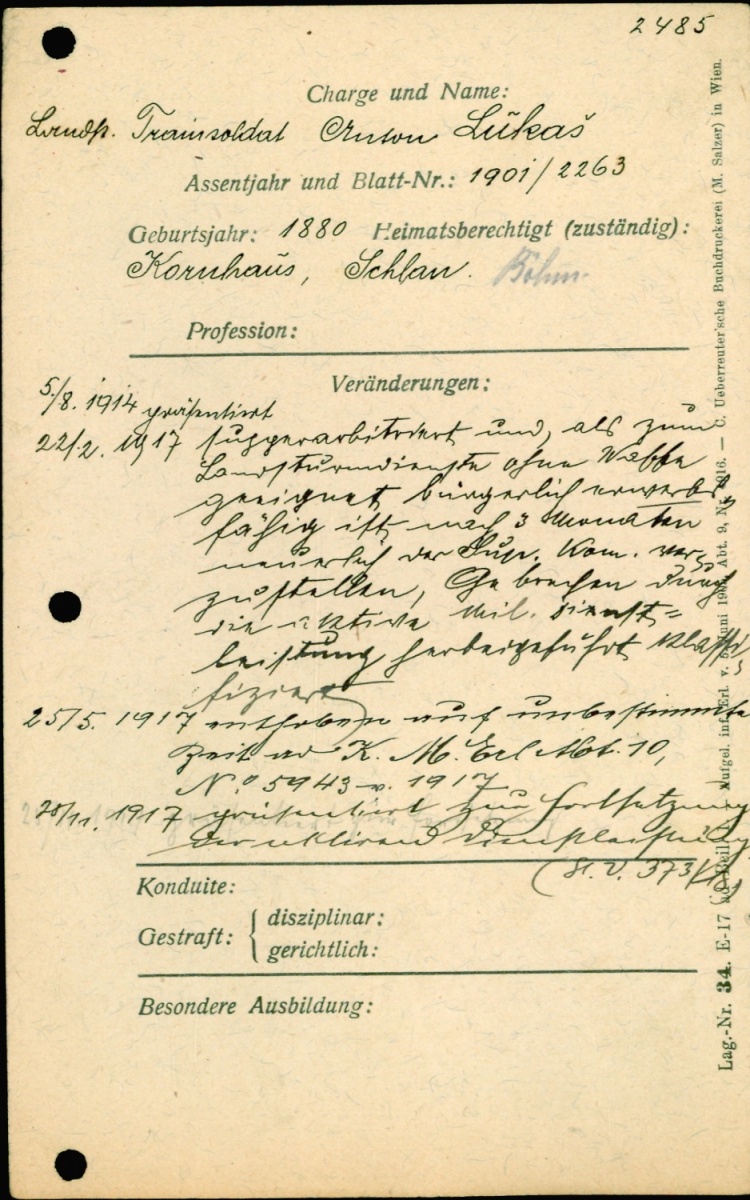 2485
Charge und Name:
Landst. Trainsoldat Anton Lukaš
Assentjahr und Blatt-Nr.: 1901/2263
Geburtsjahr: 1880 Heimatsberechtigt (zuständig):
Kornhaus, Schlan. Böhm.
Profession:
Veränderungen:
5/8. 1914 präsentiert
22/2. 1917 superarbitriert und, als zum
Landsturmdienste ohne Waffe
geeignet bürgerlich erwerbs
fähig ist nach 3 Monaten
neuerlich der Sup. Kom. vor-
zustellen, Gebrechen durch
die aktive Mil. dienst=
leistung herbeigeführt klassi
fiziert
25/5. 1917 enthoben auf unbestimmte
Zeit ad K. M. Erl Abt. 10,
No 5943 v. 1917
28/11. 1917 präsentiert zur Fortsetzung
der aktiven Dienstleistung
373
Konduite:
Gestraft: { disziplinar:
gerichtlich:
Besondere Ausbildung:
Lag.-Nr. 34. E-17 Aufgel. inf. Erl. v. 5. Juni Abt. 9, — C. Ueberreuter'sche Buchdruckerei (M. Salzer) in Wien.